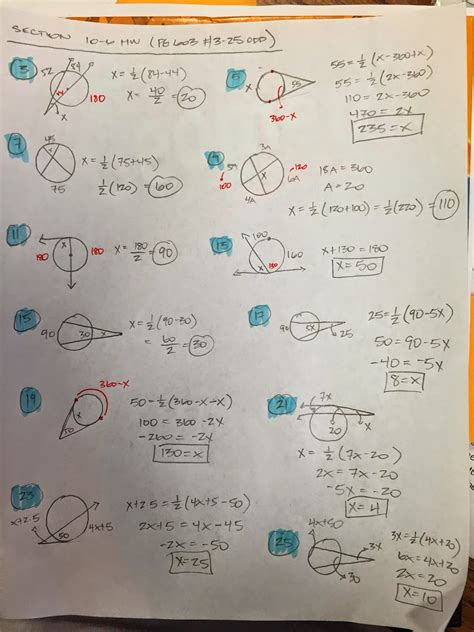 SECTION 10-6 HW (PG 603 #3-25 ODD)
3
52
84
44
180
x
x = ½(84-44)
x = 40/2 = 20
5
x
55
360-x
55 = ½(x-360+x)
55 = ½(2x-360)
110 = 2x-360
470 = 2x
235 = x
7
45
75
x = ½(75+45)
½(120) = 60
9
3A
5A
100
x
120
6A
4A
18A = 360
A = 20
x = ½(120+100) = ½(220) = 110
11
x
180
180
x = 180/2 = 90
13
100
160
x
x+130 = 180
x = 50
15
90
30
x
x = ½(90-30)
= 60/2 = 30
17
90
5x
25
25 = ½(90-5x)
50 = 90-5x
-40 = -5x
8 = x
19
360-x
x
50
50 = ½(360-x-x)
100 = 360-2x
-260 = -2x
130 = x
21
7x
20
x
x = ½(7x-20)
2x = 7x-20
-5x = -20
x = 4
23
x+25
50
4x+5
x+25 = ½(4x+5-50)
2x+5 = 4x-45
-2x = -50
x = 25
25
4x+50
3x
30
3x = ½(4x+20)
6x = 4x+20
2x = 20
x = 10